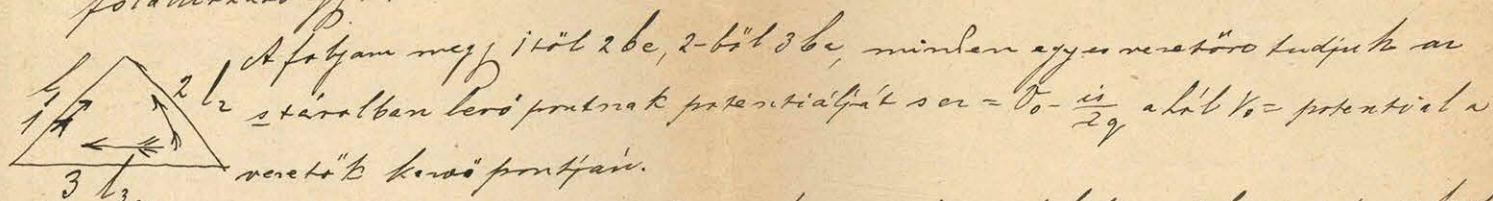 A folyam megy 1től 2be, 2-ből 3ba, minden egyes vezetőre tudjuk az
l₁ 1 2 l₂ s távolban levő pontnak potentiálját s ez = V₀ - is/λq ahol V₀ = potential a
vezetők kezdő pontján.
3 l₃.